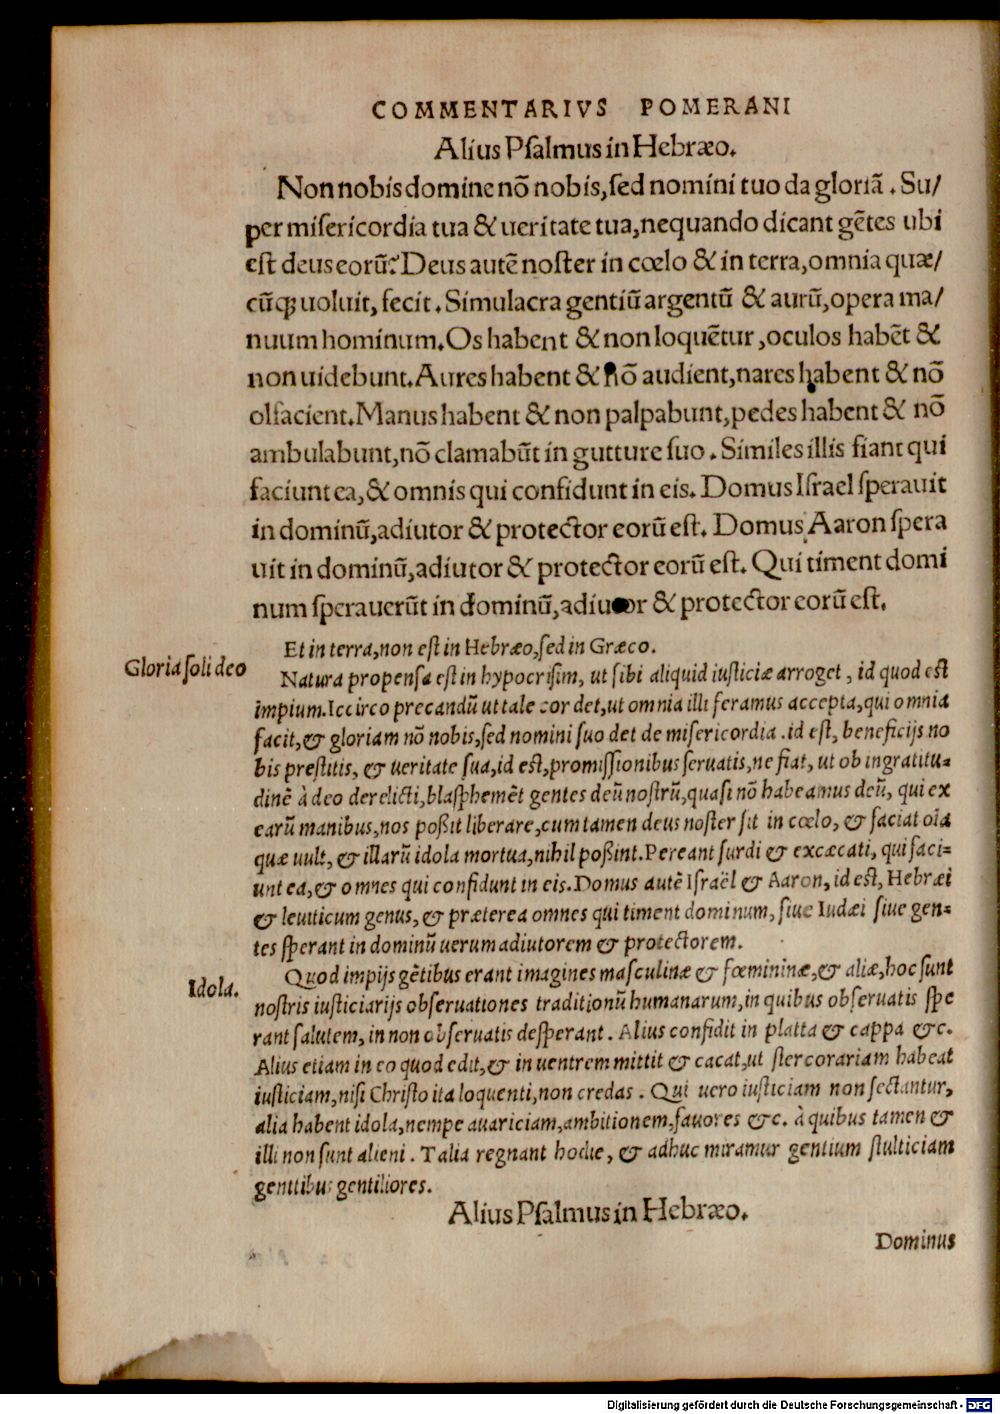 COMMENTARIVS POMERANI
Alius Psalmus in Hebræo.
Non nobis domine nō nobis, sed nomini tuo da gloriā. Su/
per misericordia tua & ueritate tua, nequando dicant gētes ubi
est deus eorū? Deus autē noster in cœlo & in terra, omnia quæ/
cūqꝫ uoluit, fecit. Simulacra gentiū argentū & aurū, opera ma/
nuum hominum. Os habent & non loquētur, oculos habēt &
non uidebunt. Aures habent & nō audient, nares habent & nō
olfacient. Manus habent & non palpabunt, pedes habent & nō
ambulabunt, nō clamabūt in gutture suo. Similes illis fiant qui
faciunt ea, & omnis qui confidunt in eis. Domus Israel sperauit
in dominū, adiutor & protector eorū est. Domus Aaron spera
uit in dominū, adiutor & protector eorū est. Qui timent domi
num sperauerūt in dominū, adiutor & protector eorū est.
Et in terra, non est in Hebræo, sed in Græco.
Gloria soli deo
Natura propensa est in hypocrisim, ut sibi aliquid iusticiæ arroget, id quod est
impium. Iccirco precandū ut tale cor det, ut omnia illi feramus accepta, qui omnia
facit, & gloriam nō nobis, sed nomini suo det de misericordia. id est, beneficijs no
bis prestitis, & ueritate sua, id est, promissionibus seruatis, ne fiat, ut ob ingratitu=
dinē à deo derelicti, blasphemēt gentes deū nostrū, quasi nō habeamus deū, qui ex
earū manibus, nos poßit liberare, cum tamen deus noster sit in cœlo, & faciat oīa
quæ uult, & illarū idola mortua, nihil poßint. Pereant surdi & excæcati, qui faci=
unt ea, & omnes qui confidunt in eis. Domus autē Israël & Aaron, id est, Hebræi
& leuiticum genus, & præterea omnes qui timent dominum, siue Iudæi siue gen=
tes sperant in dominū uerum adiutorem & protectorem.
Idola.
Quod impijs gētibus erant imagines masculinæ & fœmininæ, & aliæ, hoc sunt
nostris iusticiarijs obseruationes traditionū humanarum, in quibus obseruatis spe
rant salutem, in non obseruatis desperant. Alius confidit in platta & cappa &c.
Alius etiam in eo quod edit, & in uentrem mittit & cacat, ut stercorariam habeat
iusticiam, nisi Christo ita loquenti, non credas. Qui uero iusticiam non sectantur,
alia habent idola, nempe auariciam, ambitionem, fauores &c. à quibus tamen &
illi non sunt alieni. Talia regnant hodie, & adhuc miramur gentium stulticiam
gentibus gentiliores.
Alius Psalmus in Hebræo.
Dominus
Digitalisierung gefördert durch die Deutsche Forschungsgemeinschaft - DFG